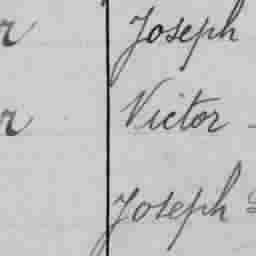 r Joseph
r Victor
Joseph